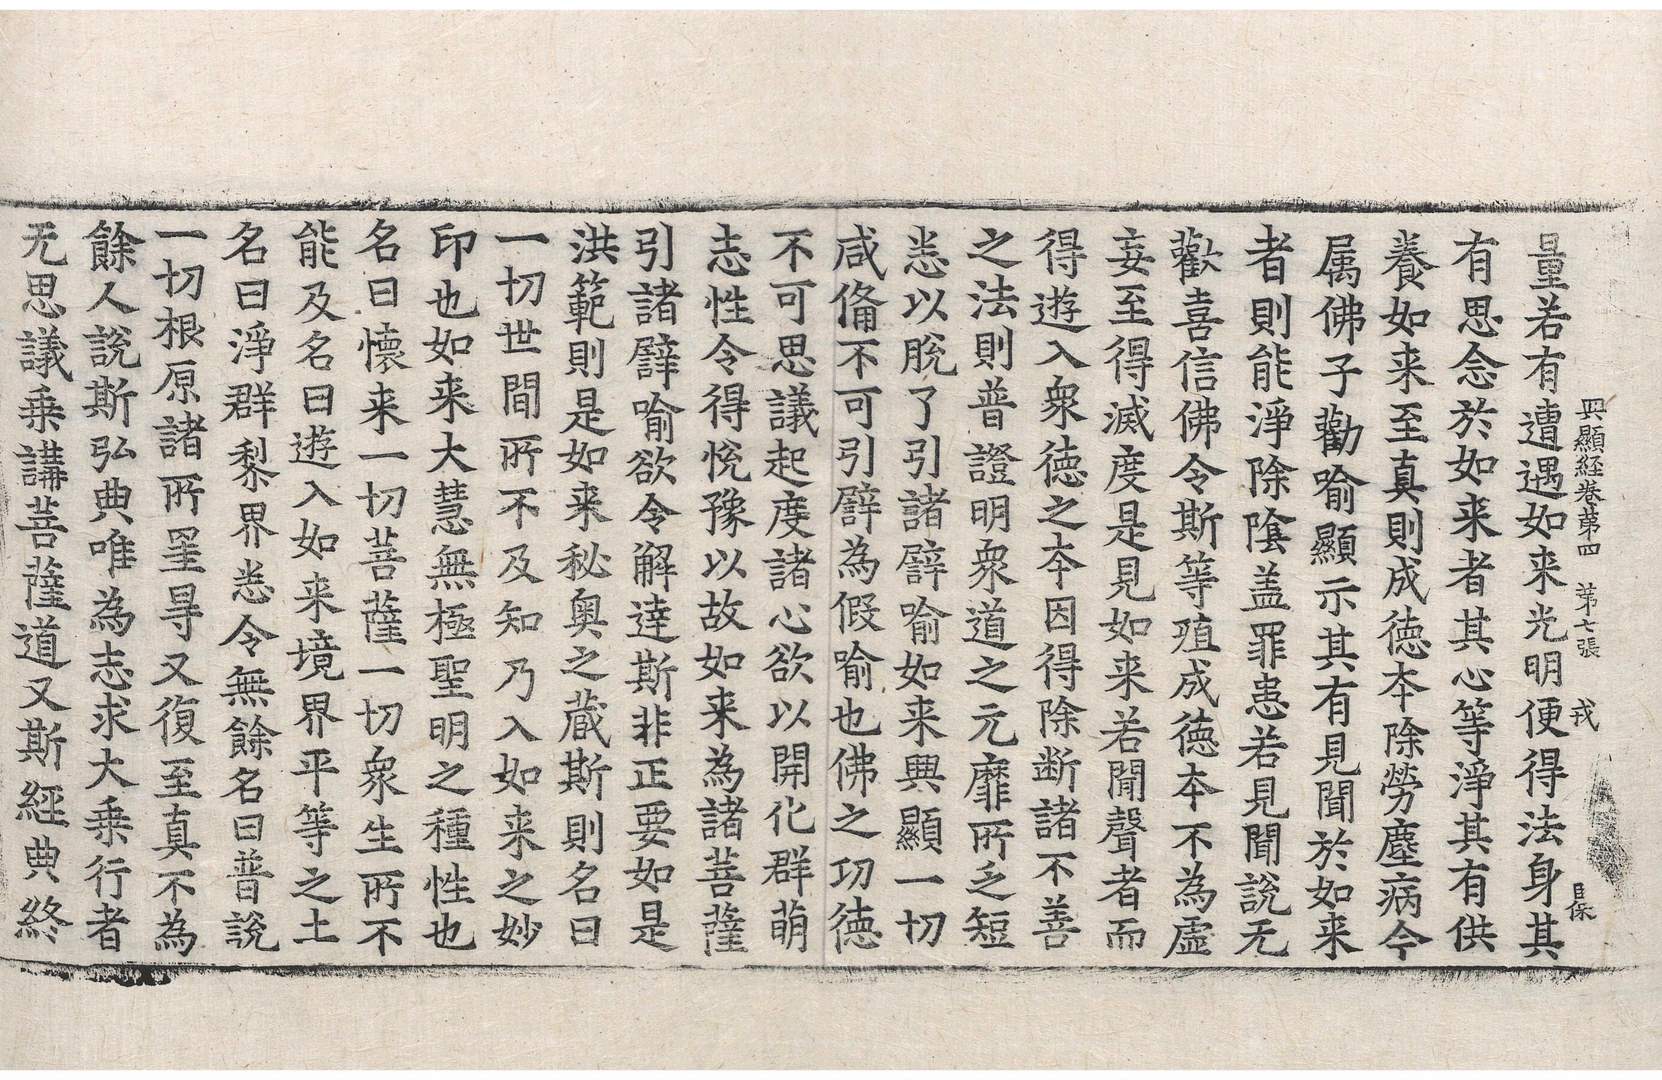 興顯經卷第四 第七張 戎
量若有遭遇如来光明便得法身其
有思念於如来者其心等淨其有供
養如来至真則成德本除勞塵病令
属佛子勸喻顯示其有見聞於如来
者則能淨除陰盖罪患若見聞說无
歡喜信佛令斯等殖成德本不為虛
妄至得滅度是見如来若聞聲者而
得遊入衆德之本因得除断諸不善
之法則普證明衆道之元靡所乏短
悉以脫了引諸譬喻如来興顯一切
咸俻不可引譬為假喻也佛之功德
不可思議起度諸心欲以開化群萌
志性令得悅豫以故如来為諸菩薩
引諸譬喻欲令解達斯非正要如是
洪範則是如来秘奥之蔵斯則名曰
一切世間所不及知乃入如来之妙
印也如来大慧無極聖明之種性也
名曰懷来一切菩薩一切衆生所不
能及名曰遊入如来境界平等之土
名曰淨群黎界悉令無餘名曰普說
一切根原諸所罣㝵又復至真不為
餘人說斯弘典唯為志求大乗行者
无思議乗講菩薩道又斯經典終